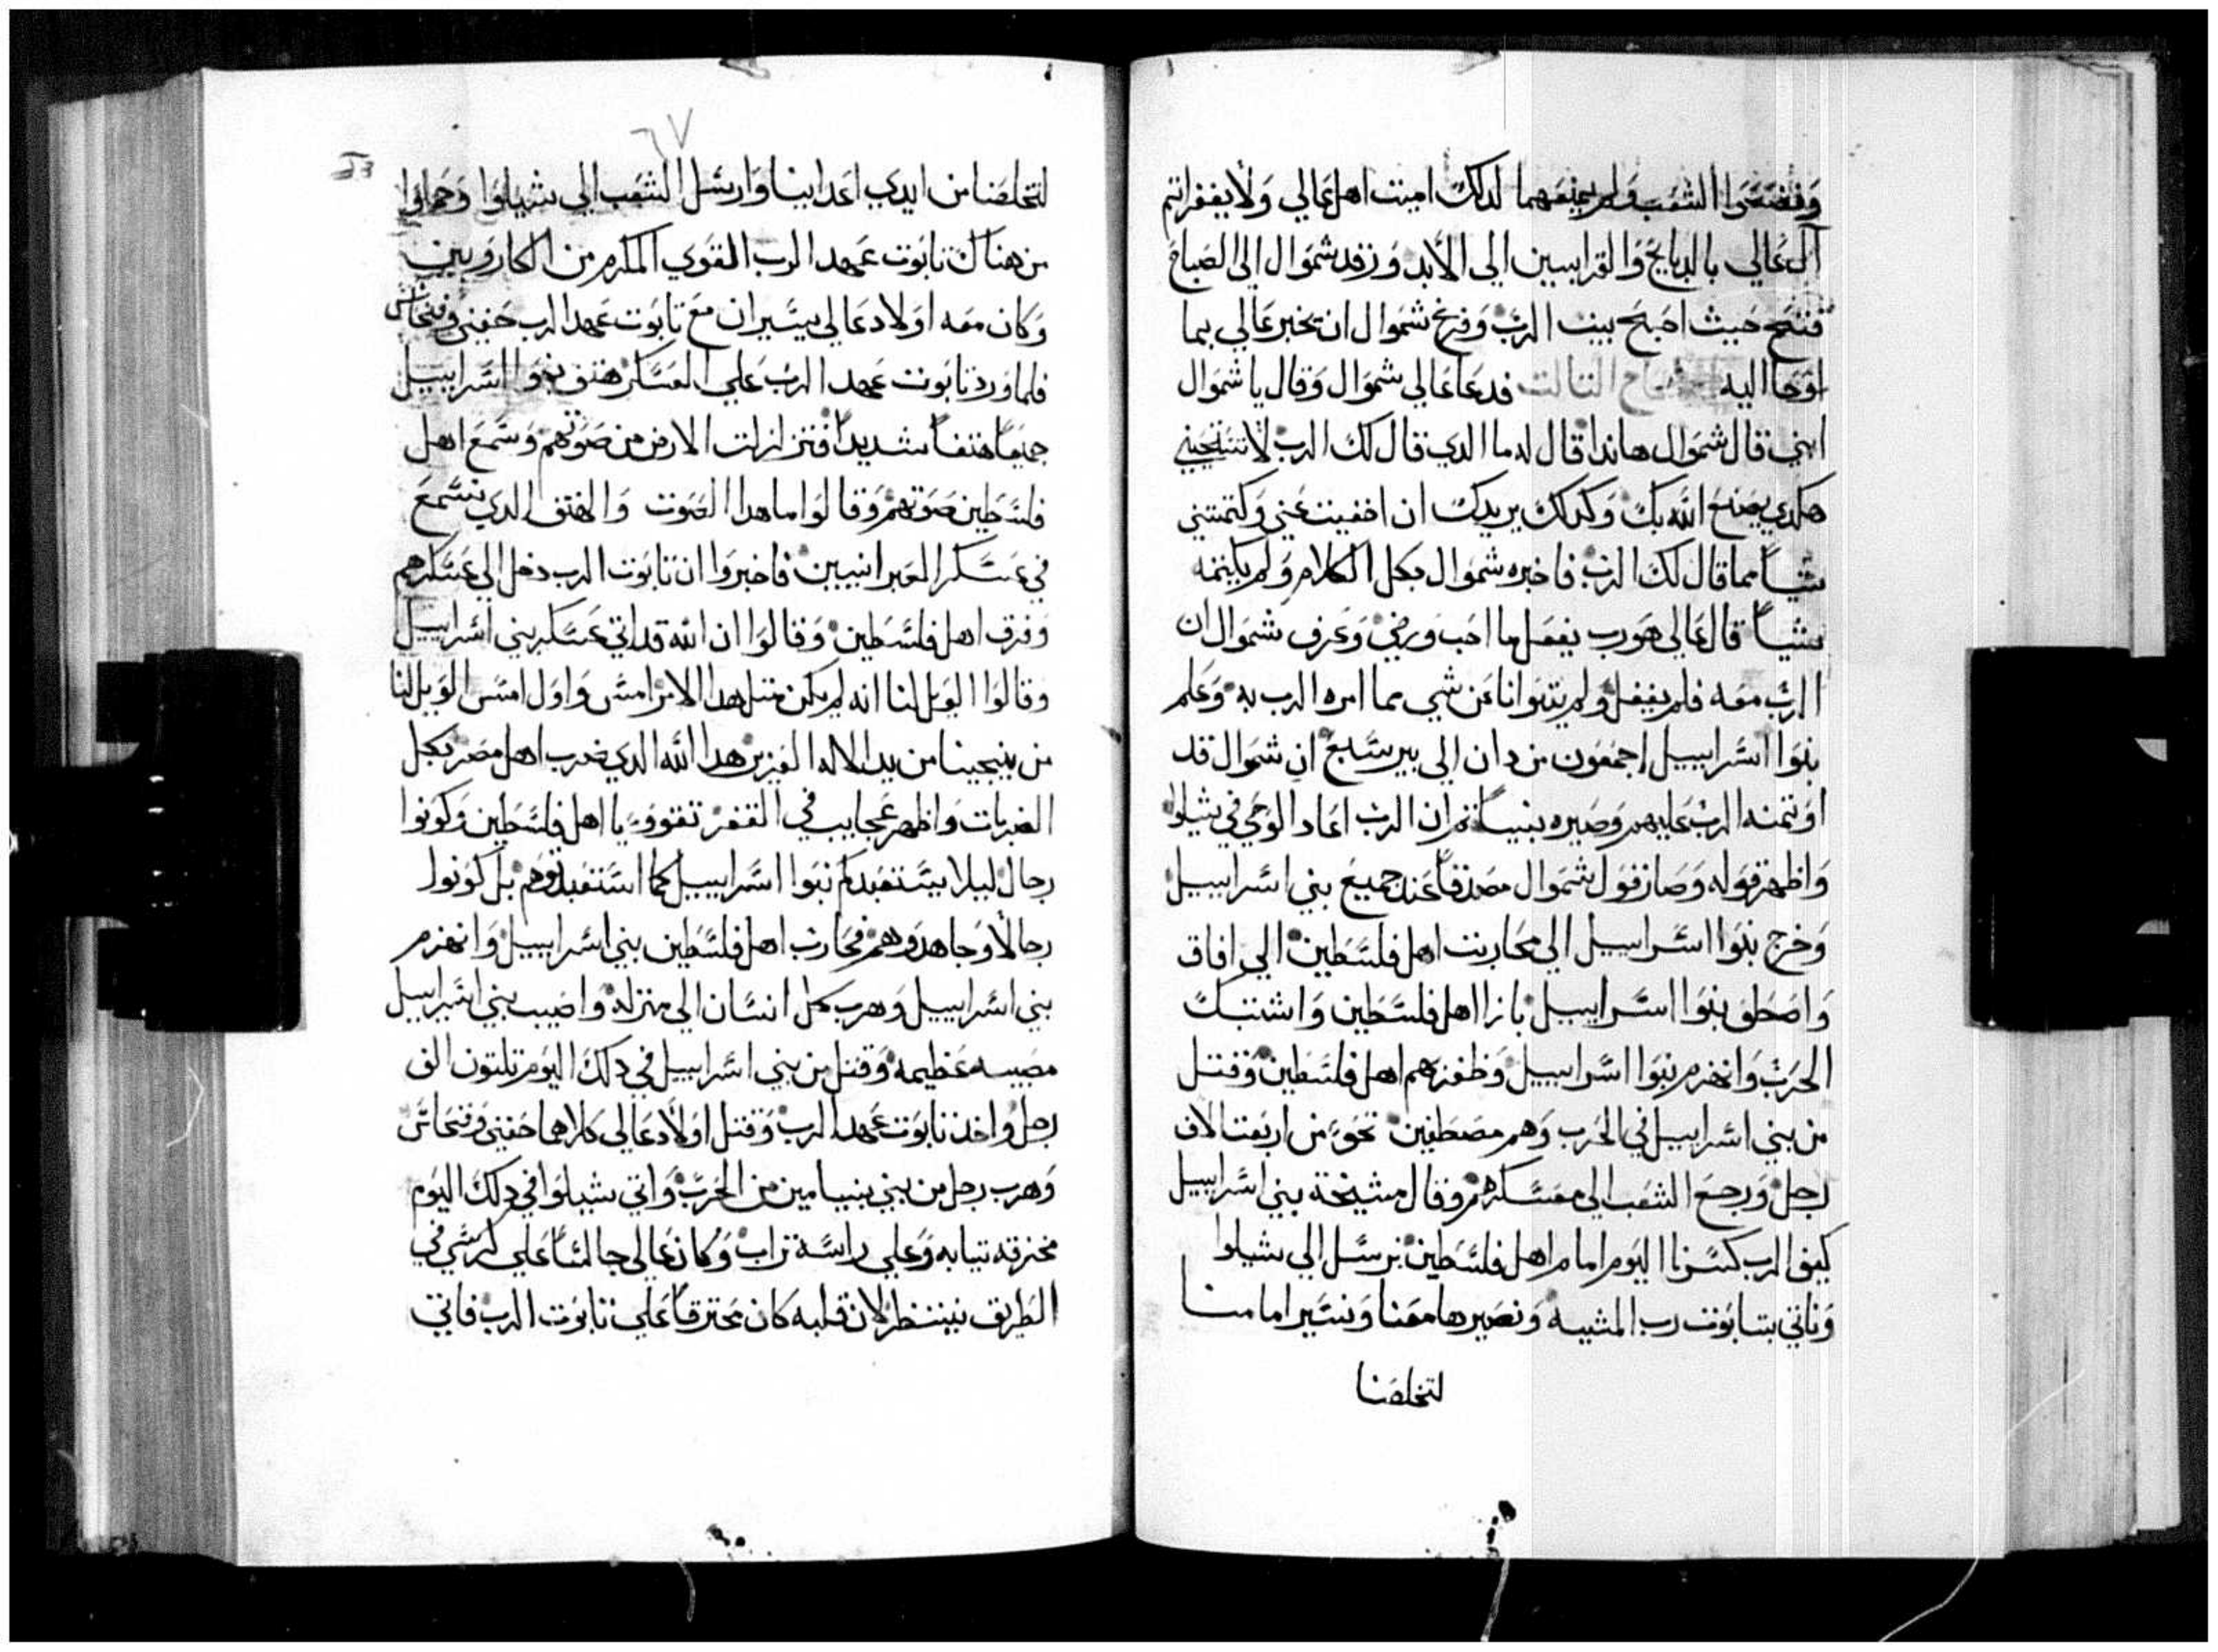 وفضحوا الشعب ولم يمنعهما لدلك امينت اهل عالي ولا يغفر اتم
آل عالي بالدبايح والقرابيين الي الابد ورقد شموال الي الصباح
ففتح حيث اصبح بيت الرب وفزع شموال ان يخبر عالي بما
اوحا اليه الاصحاح التالت فدعا عالي شموال وقال يا شموال
ابني قال شموال هاندا قال له ما الدي قال لك الرب لا تستحيي
هكدي يصنع الله بك وكدلك يزيدك ان اخفيت عني وكتمتني
شياً مما قال لك الرب فاخبره شموال بكل الكلام ولم يكتمه
شياً قال عالي هو رب يفعل ما احب ورضي وعرف شموال ان
الرب معه فلم يغفل ولم يتوانا عن شي مما امره الرب به وعلم
بنوا اسراييل اجمعون من دان الي بير سبع ان شموال قد
اوتمنه الرب عليهم وصيره نبياً تم ان الرب اعاد الوحي في شيلوا
واظهر قوله وصار قول شموال مصدقاً عند جميع بني اسراييل
وخرج بنوا اسراييل الي محاربت اهل فلسطين الي افاق
واصطف بنوا اسراييل بازا اهل فلسطين واشتبك
الحرب وانهزم بنوا اسراييل وظفر بهم اهل فلسطين وقتل
من بني اسراييل في الحرب وهم مصطفين نحو من اربعت الاف
رجل ورجع الشعب الي معسكرهم وقال مشيخة بني اسراييل
كيف الرب كسرنا اليوم امام اهل فلسطين نرسل الي شيلوا
وناتي بتابوت رب المشيه ونصيرها معنا ونسير امامنا
لتخلصنا
٦٧
لتخلصنا من ايدي اعداينا وارسل الشعب الي شيلوا وحملوا
من هناك تابوت عهد الرب القوي المكرم من الكاروبين
وكان معه اولاد عالي يسيران مع تابوت عهد الرب حفني وفنحاس
فلما ورد تابوت عهد الرب علي العسكر هتف بنوا اسراييل
جميعاً هتفاً شديداً فتزلزلت الارض من صوتهم وسمع اهل
فلسطين صوتهم وقالوا ما هدا الصوت والهتف الدي نسمع
في عسكر العبرانيين فاخبروا ان تابوت الرب دخل الي عسكرهم
وفرق اهل فلسطين وقالوا ان الله قد اتي عسكر بني اسراييل
وقالوا الويل لنا انه لم يكن متل هدا الامر امس واول امس الويل لنا
من ينجينا من يد الاله العزيز هدا الله الدي ضرب اهل مصر بكل
الضربات واظهر عجايب في القفر تقووا يا اهل فلسطين وكونوا
رجال ليلا يستعبدكم بنوا اسراييل كما استعبدتوهم بل كونوا
رجالاً وجاهدوهم فحارب اهل فلسطين بني اسراييل وانهزم
بني اسراييل وهرب كل انسان الي منزله واصيب بني اسراييل
مصيبه عظيمه وقتل من بني اسراييل في دلك اليوم تلتون الف
رجل واخد تابوت عهد الرب وقتل اولاد عالي كلاهما حفني وفنحاس
وهرب رجل من بني بنيامين من الحرب واتي شيلوا في دلك اليوم
مخرقه تيابه وعلي راسه تراب وكان عالي جالساً علي كرسي في
الطريق ينتظر لان قلبه كان محترقاً علي تابوت الرب فاتي